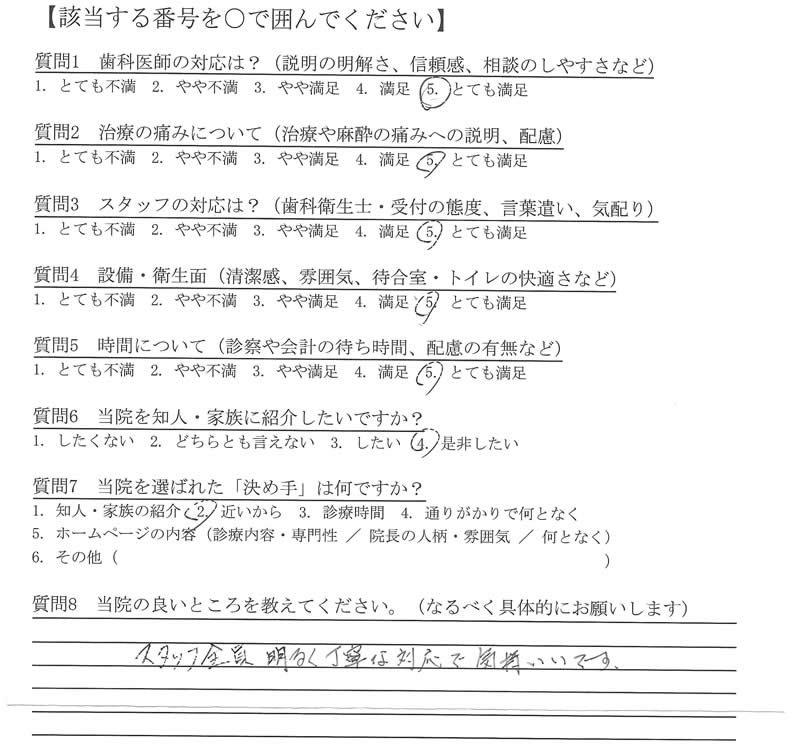 【該当する番号を○で囲んでください】
質問1 歯科医師の対応は？（説明の明解さ、信頼感、相談のしやすさなど）
1. とても不満 2. やや不満 3. やや満足 4. 満足 5. とても満足
質問2 治療の痛みについて（治療や麻酔の痛みへの説明、配慮）
1. とても不満 2. やや不満 3. やや満足 4. 満足 5. とても満足
質問3 スタッフの対応は？（歯科衛生士・受付の態度、言葉遣い、気配り）
1. とても不満 2. やや不満 3. やや満足 4. 満足 5. とても満足
質問4 設備・衛生面（清潔感、雰囲気、待合室・トイレの快適さなど）
1. とても不満 2. やや不満 3. やや満足 4. 満足 5. とても満足
質問5 時間について（診察や会計の待ち時間、配慮の有無など）
1. とても不満 2. やや不満 3. やや満足 4. 満足 5. とても満足
質問6 当院を知人・家族に紹介したいですか？
1. したくない 2. どちらとも言えない 3. したい 4. 是非したい
質問7 当院を選ばれた「決め手」は何ですか？
1. 知人・家族の紹介 2. 近いから 3. 診療時間 4. 通りがかりで何となく
5. ホームページの内容（診療内容・専門性 ／ 院長の人柄・雰囲気 ／ 何となく）
6. その他（ ）
質問8 当院の良いところを教えてください。（なるべく具体的にお願いします）
スタッフ全員 明るく丁寧な対応で 気持いいです。